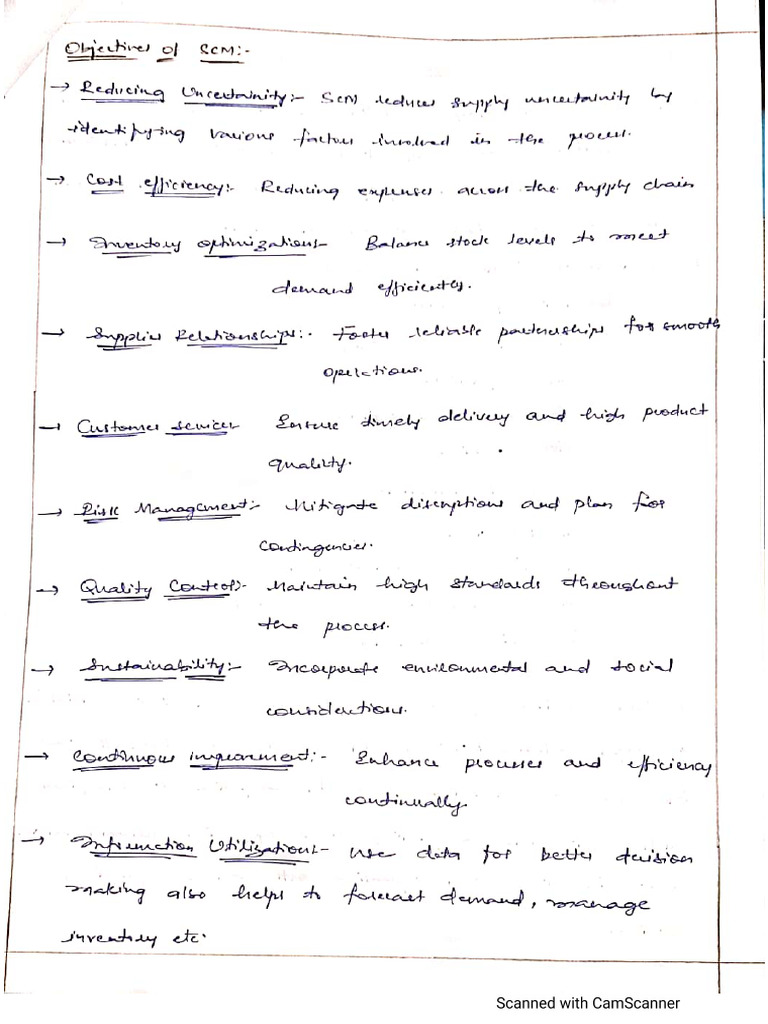 Objectives of SCM:-
→ Reducing Uncertainity:- SCM reduces supply uncertainity by
identifying various factors involved in the process.
→ Cost efficiency:- Reducing expenses across the supply chain
→ Inventory optimization:- Balance stock levels to meet
demand efficiently.
→ Supplier Relationships:- Foster reliable partnerships for smooth
operations.
→ Customer services Ensure timely delivery and high product
quality.
→ Risk Management:- Mitigate disruptions and plan for
contingencies.
→ Quality Control:- Maintain high standards throughout
the process.
→ Sustainability:- Incorporate environmental and social
considerations.
→ Continuous :- Enhance processes and efficiency
continually.
→ Information Utilization:- use data for better decision
making also helps to forecast demand, manage
inventory etc.
Scanned with CamScanner